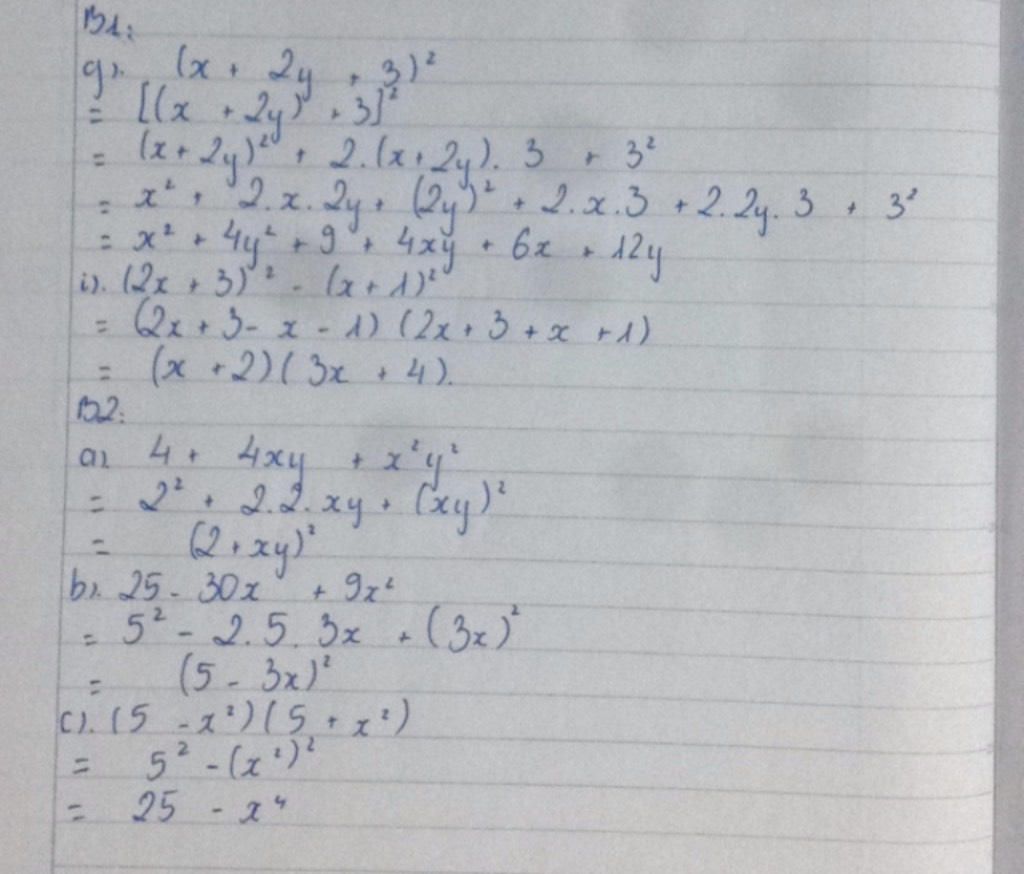 B1:
g). (x + 2y + 3)²
= [(x + 2y) + 3]²
= (x + 2y)² + 2.(x + 2y). 3 + 3²
= x² + 2.x.2y + (2y)² + 2.x.3 + 2.2y.3 + 3²
= x² + 4y² + 9 + 4xy + 6x + 12y
i). (2x + 3)² - (x + 1)²
= (2x + 3 - x - 1) (2x + 3 + x + 1)
= (x + 2) (3x + 4).
B2:
a). 4 + 4xy + x²y²
= 2² + 2.2.xy + (xy)²
= (2 + xy)²
b). 25 - 30x + 9x²
= 5² - 2.5.3x + (3x)²
= (5 - 3x)²
c). (5 - x²) (5 + x²)
= 5² - (x²)²
= 25 - x⁴